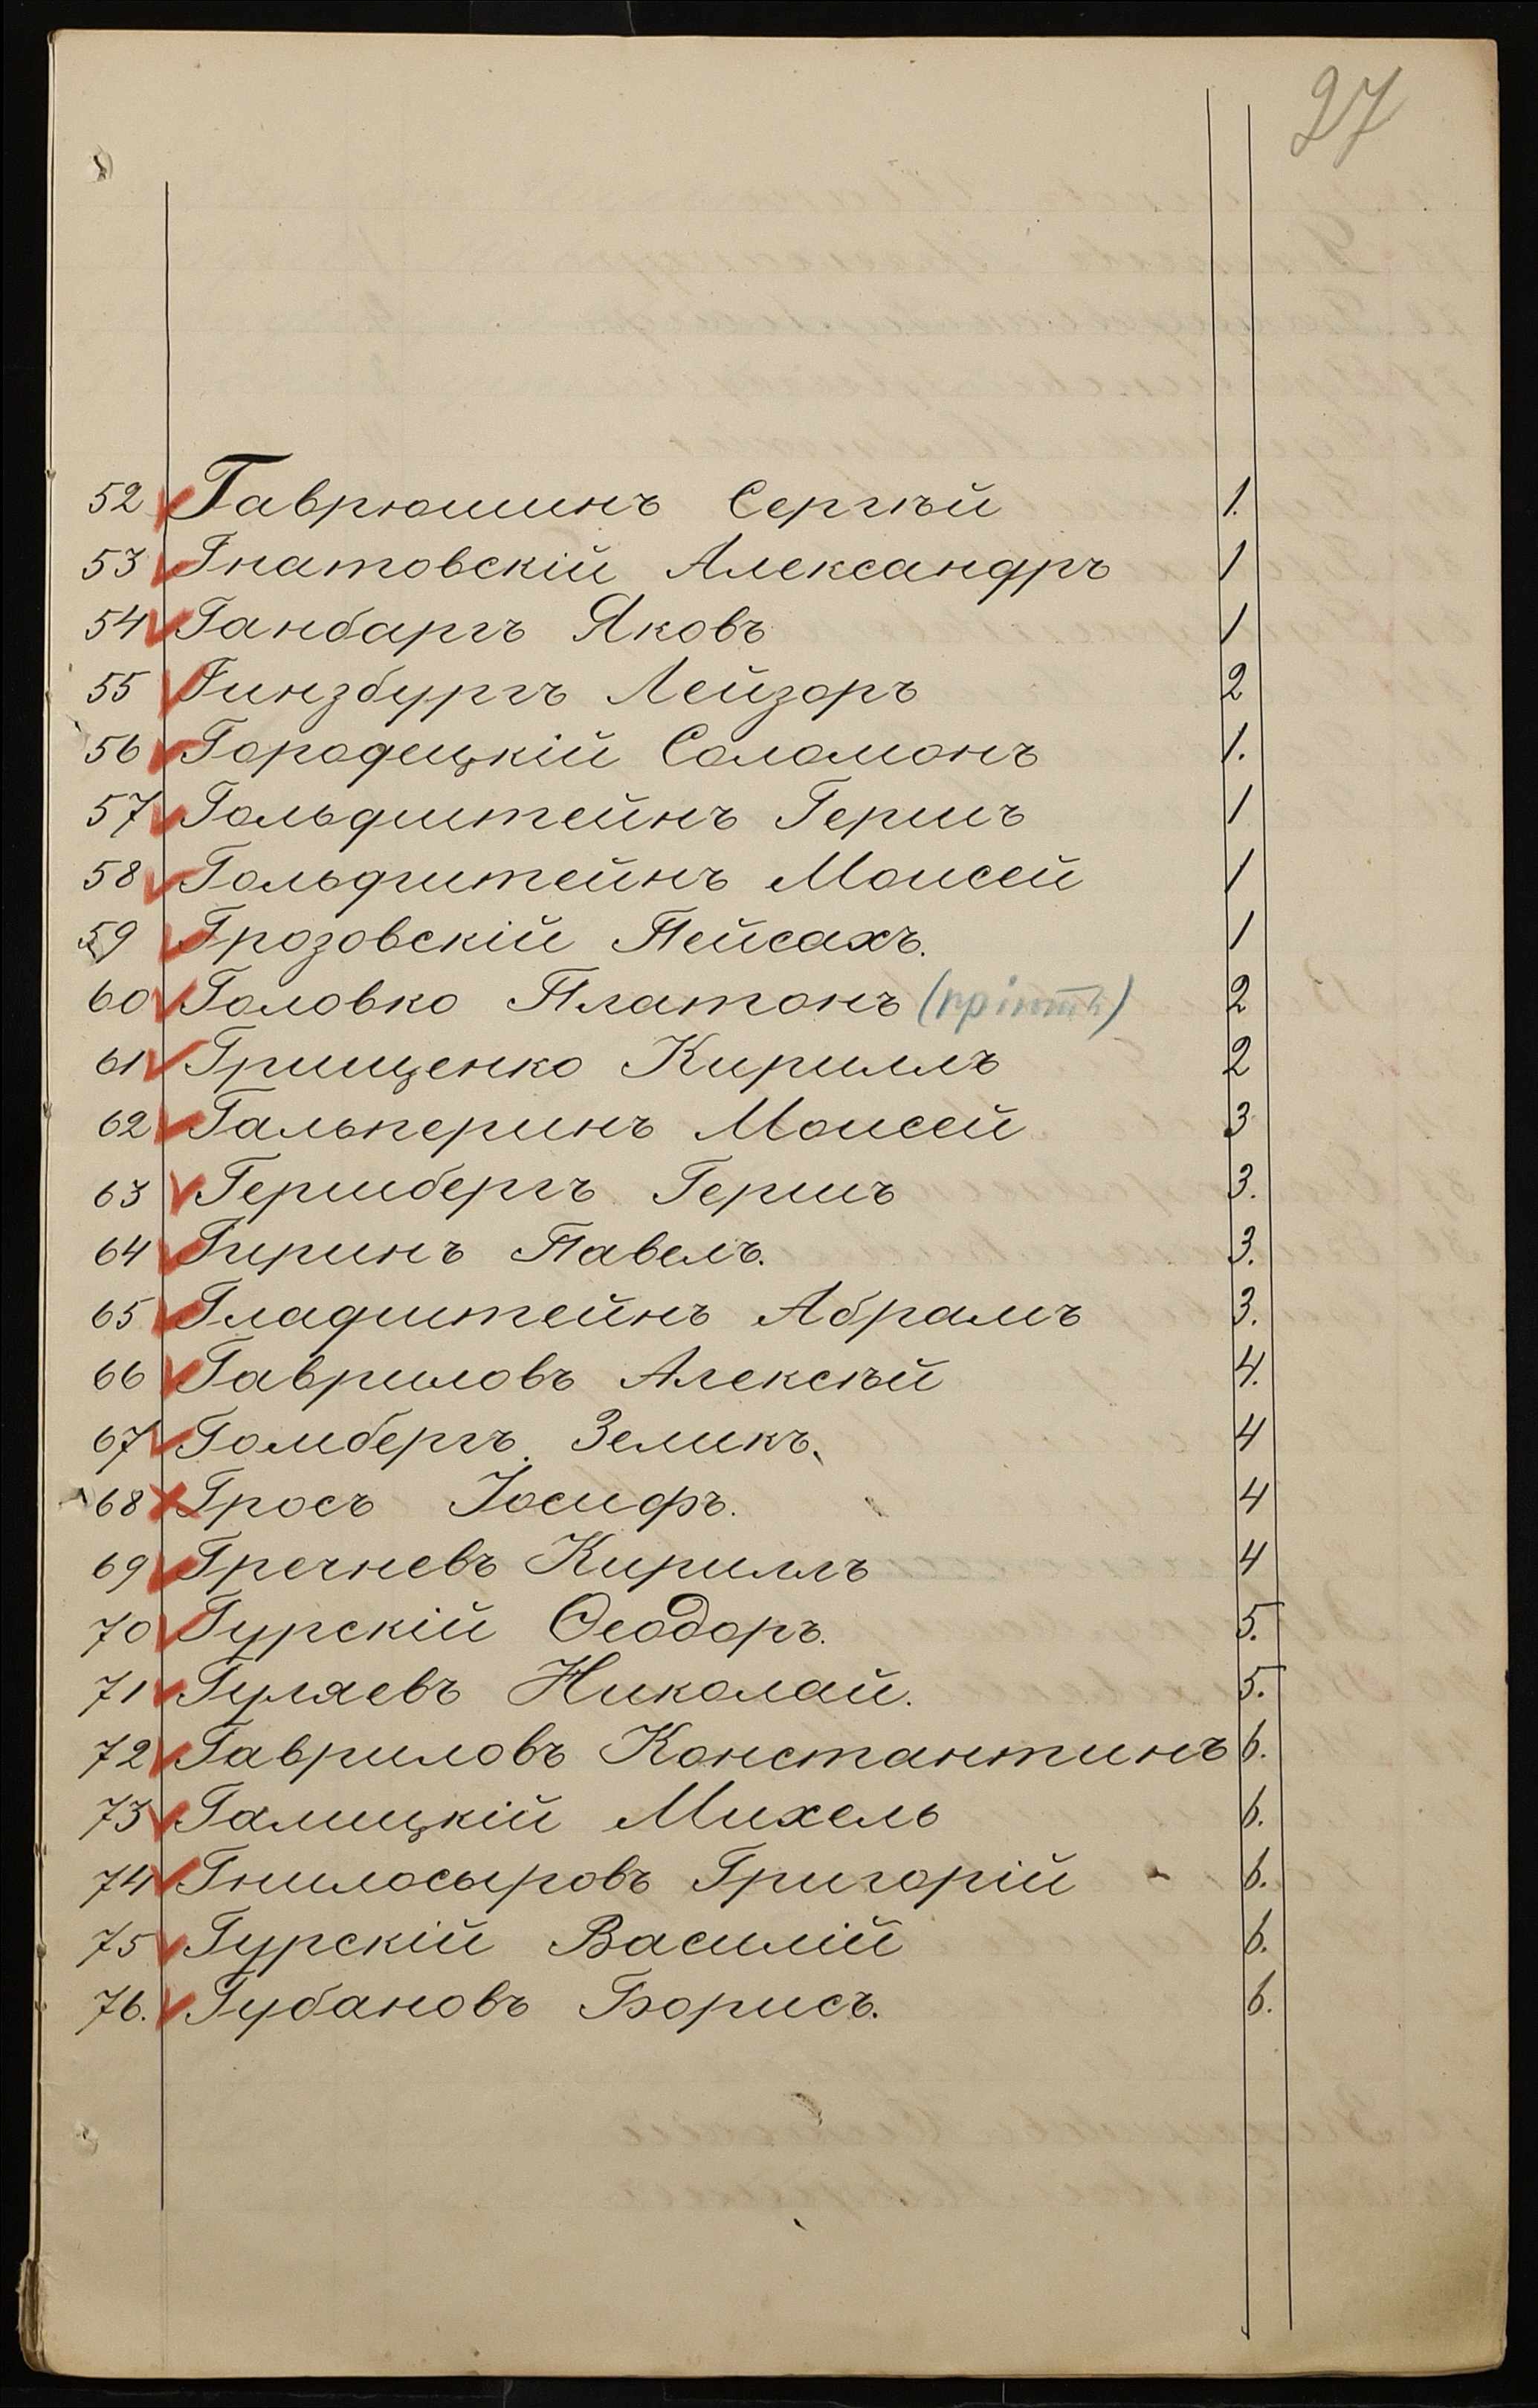 27
52 Гаврюшинъ Сергѣй 1.
53 Гнатовскій Александръ 1
54 Ганбаргъ Яковъ 1
55 Гинзбургъ Лейзоръ 2
56 Городецкій Соломонъ 1.
57 Гольдштейнъ Гершъ 1
58 Гольдштейнъ Моисей 1
59 Грозовскій Пейсахъ. 1
60 Головко Платонъ 2
61 Грищенко Кириллъ 2
62 Гальперинъ Моисей 3
63 Гершбергъ Гершъ 3.
64 Гиринъ Павелъ. 3.
65 Гладштейнъ Абрамъ 3.
66 Гавриловъ Алексѣй 4.
67 Гомбергъ Зеликъ. 4
68 Гросъ Іосифъ. 4
69 Гречневъ Кириллъ 4
70 Гурскій Ѳеодоръ. 5.
71 Гуляевъ Николай. 5.
72 Гавриловъ Константинъ 6.
73 Галицкій Михель 6.
74 Гнилосыровъ Григорій 6.
75 Гурскій Василій 6.
76. Губановъ Борисъ. 6.